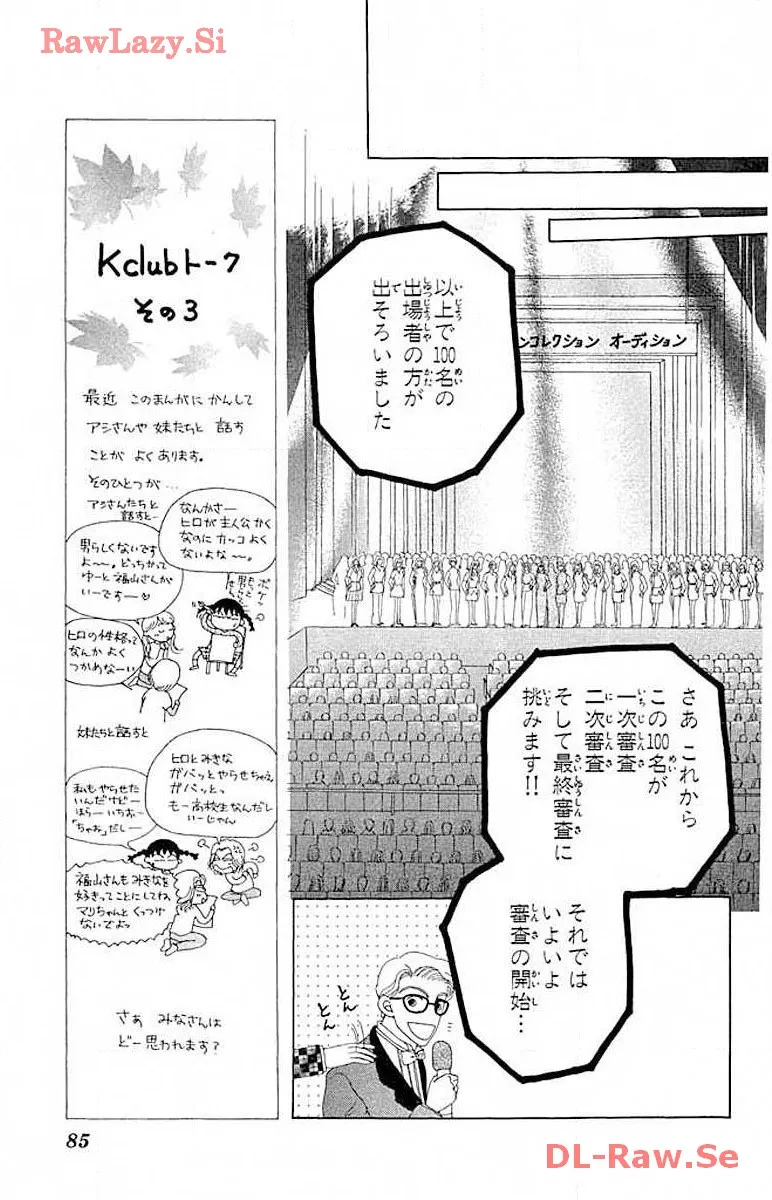 RawLazy.Si
ンコレクション オーディション
以上で100名の
出場者の方が
出そろいました
さあ これから
この100名が
一次審査
二次審査
そして最終審査に
挑みます!!
それでは
いよいよ
審査の開始…
とん
とん
Kclubトーク
その3
最近 このまんがに かんして
アシさんや 妹たちと 話す
ことが よくあります。
そのひとつが…
アシさんたちと
話すと―
なんかさ―
ヒロが主人公かく
なのに カッコよく
ないよな〜〜。
男らしくないです
よ〜〜。どっちかって
ゆーと福山さんが
いーですー♡
ヒロの性格って
なんか よく
つかめなーい
妹たちと話すと
ヒロとみきな
ガバッとやらせちゃえ
ガバッとっ
もー高校生なんだし
いーじゃん
私もやらせた
いんだけどー
ほらー いちおー
「ちゃお」だしー
福山さんもみきなを
好きってことにしてね
マリちゃんとくっつけ
ないでよっ
さあ みなさんは
どー思われます?
85
DL-Raw.Se